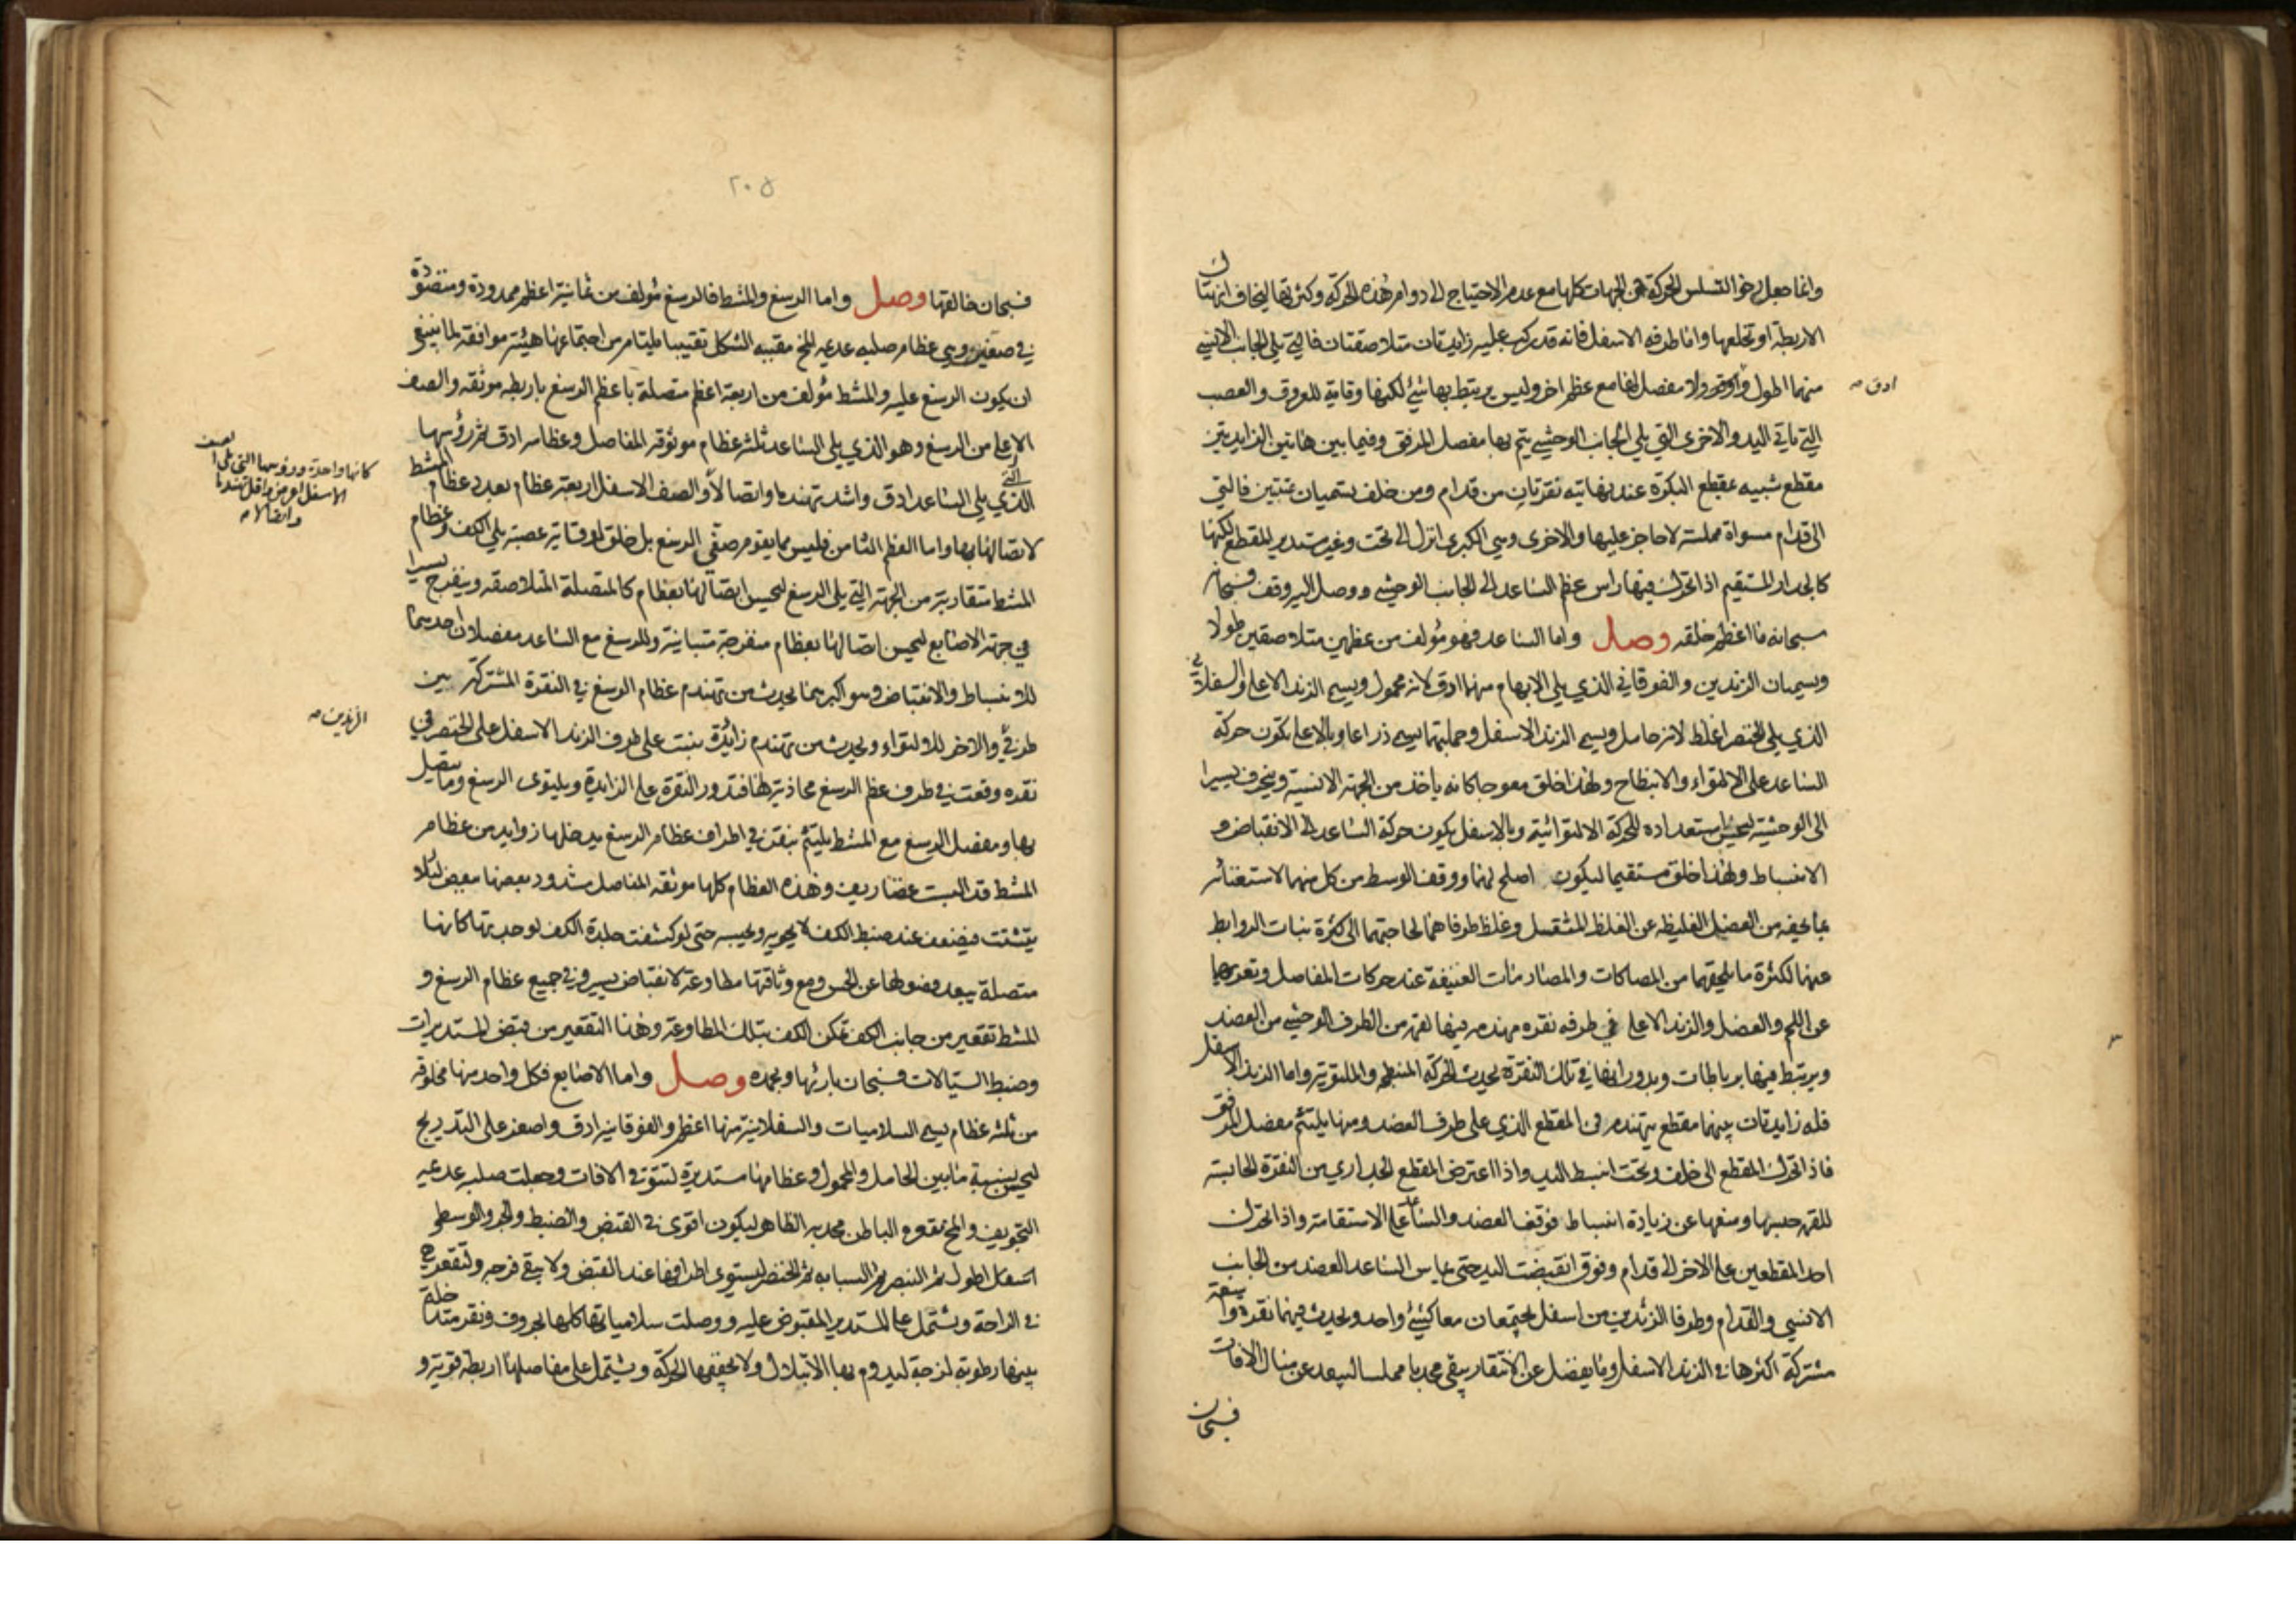 وانما جعل رخوا لتسلس الحركة في الجهات كلها مع عدم الاحتياج الى دوام هذه الحركة وكثرتها ليخاف انهتاك
الاربطة او تخلعها واما طرفه الاسفل فانه قد ركب عليه زايدتان متلاصقتان فالتي تلي الجانب الانسي
منهما اطول وادق ولا مفصل لها مع عظم اخر وليس يرتبط بها شيئ لكنها وقاية للعروق والعصب
ادق صه
التي تاتي اليد والاخرى التي يلي الجانب الوحشي يتم بها مفصل المرفق وفيما بين هاتين الزايدتين
مقطع شبيه بمقطع البكرة عند نهايتيه نقرتان من قدام ومن خلف يسميان عتبتين فالتي
الى قدام مسواة مملسة لا حاجز عليها والاخرى وهي الكبرى انزل الى تحت وغير مستدير المقطع لكنها
كالجدار المستقيم اذا تحرك فيها راس عظم الساعد الى الجانب الوحشي ووصل اليه وقف فسبحانه
سبحانه ما اعظم خلقه وصل واما الساعد فهو مؤلف من عظمين متلاصقين طولا
ويسميان الزندين والفوقاني الذي يلي الابهام منهما ادق لانه محمول ويسمى الزند الاعلى والسفلاني
الذي يلي الخنصر اغلظ لانه حامل ويسمى الزند الاسفل وجملتهما يسمى ذراعا وبالاعلى تكون حركة
الساعد على الالتواء والانبطاح ولهذا خلق معوجا كانه ياخذ من الجهة الانسية وينحرف يسيرا
الى الوحشية ليحسن استعداده للحركة الالتوائية وبالاسفل يكون حركة الساعد الى الانقباض و
الانبساط ولهذا خلق مستقيما ليكون اصلح لهما ووقف الوسط من كل منهما لاستغنائه
بما يحفه من العضل الغليظة عن الغلظ المثقل وغلظ طرفاهما لحاجتهما الى كثرة نبات الروابط
عنهما لكثرة ما يلحقهما من المصاكات والمصادمات العنيفة عند حركات المفاصل وتعريهما
عن اللحم والعضل والزند الاعلى في طرفه نقرة مهندمة فيها لقمة من الطرف الوحشي من العضد
ويرتبط فيها برباطات وبدورانها في تلك النقرة يحدث الحركة المنبطحة والملتوية واما الزند الاسفل
فله زايدتان بينهما مقطع يتهندم في المقطع الذي على طرف العضد ومنها يلتئم مفصل المرفق
فاذا تحرك المقطع الى خلف وتحت انبسط اليد واذا اعترض المقطع الجداري من النقرة الحابسة
للقمة حبسها ومنعها عن زيادة انبساط فوقف العضد والساعد على الاستقامة واذا تحرك
احد المقطعين على الاخر الى قدام وفوق انقبضت اليد حتى يماس الساعد العضد من الجانب
الانسي والقدام وطرفا الزندين من اسفل يجتمعان معا كشيئ واحد ويحدث فيهما نقرة واسعة
مشتركة اكثرها في الزند الاسفل وما يفضل عن الانتقار يبقى محدبا مملسا ليبعد عن منال الافات
فسبحان
٢٠٥
فسبحان خالقها وصل واما الرسغ والمشط فالرسغ مؤلف من ثمانية اعظم ممدودة ومنضودة
في صفين وهي عظام صلبه عديمه المخ مقببه الشكل تقبيبا يلتام من اجتماعها هيئة موافقة لما ينبغي
ان يكون الرسغ عليه والمشط مؤلف من اربعة اعظم متصلة باعظم الرسغ باربطه موثقه والصف
الاعلى من الرسغ وهو الذي يلي الساعد ثلثه عظام موثوقه المفاصل وعظامه ادق ثم رؤسها
الذي يلي الساعد ادق واشد تهندما واتصالا والصف الاسفل اربعة عظام بعدد عظام المشط
التي
كانها واحدة ورؤسها التي تلي الصف
الاسفل اعرض واقل تهندما
واتصالا صه
لاتصالها بها واما العظم الثامن فليس مما يقوم صفي الرسغ بل خلق لوقاية عصبة يلي الكف وعظام
المشط متقاربة من الجهة التي يلي الرسغ ليحسن اتصالها بعظام كالمتصلة المتلاصقه وينفرج يسيرا
في جهة الاصابع ليحسن اتصالها بعظام منفرجة متباينة وللرسغ مع الساعد مفصلان احديهما
للانبساط والانقباض وهو اكبرهما يحدث من تهندم عظام الرسغ في النقرة المشتركة بين
طرفي والاخر للالتواء ويحدث من تهندم زائدة ينبت على طرف الزند الاسفل على الخنصر في
الزندين صه
نقره وقعت في طرف عظم الرسغ محاذية لها فتدور النقرة على الزايدة ويلتوى الرسغ وما يتصل
بها ومفصل الرسغ مع المشط يلتئم بنقر في اطراف عظام الرسغ يدخلها زوايد من عظام
المشط قد البست غضاريف وهذه العظام كلها موثقه المفاصل مشدود بعضها ببعض لئلا
يتشتت فيضعف عند ضبط الكف لا يحويه ويحبسه حتى لو كشفت جلدة الكف لوجدتها كانها
متصلة يبعد فصولها عن الحس ومع وثاقتها مطاوعة لانقباض يسير وفي جميع عظام الرسغ و
المشط تقعير من جانب الكف تمكن الكف بتلك المطاوعة وهذا التقعير من قبض المستديرات
وضبط السيالات فسبحان بارئها وبحمده وصل واما الاصابع فكل واحد منها مخلوقه
من ثلثه عظام يسمى السلاميات والسفلانية منها اعظم والفوقانية ادق واصغر على التدريج
ليحسن نسبة ما بين الحامل والمحمول وعظامها مستديرة لتتوقى الافات وجعلت صلبه عديمه
التجويف والمخ مقعره الباطن محدبه الظاهر ليكون اقوى في القبض والضبط والجر والوسطى
اطول ثم البنصر ثم السبابه ثم الخنصر ليستوى اطرافها عند القبض ولا يبقى فرجه ولتقعر هي
في الراحة ويشتمل على المستدير المقبوض عليه ووصلت سلامياتها كلها بحروف ونقر متداخلة
بينها رطوبة لزجة ليدوم بها الابتلال ولا يجففها الحركة ويشتمل على مفاصلها اربطة قوية و